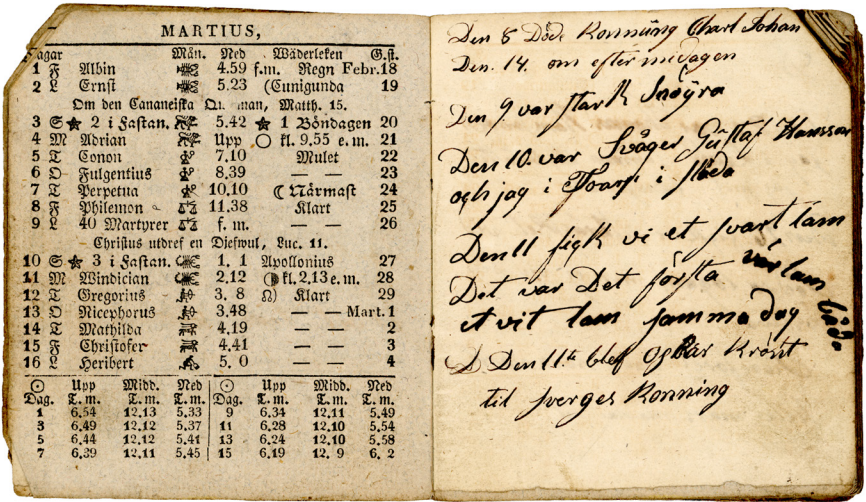 MARTIUS,
Dagar Mån. Ned Wäderleken G.st.
1 F Albin 4.59 f.m. Regn Febr. 18
2 L Ernst 5.23 (Cunigunda 19
Om den Cananeiska Qu man, Matth. 15.
3 S 2 i Fastan. 5.42 1 Böndagen 20
4 M Adrian Upp kl. 9.55 e.m. 21
5 T Conon 7.10 Mulet 22
6 O Fulgentius 8.39 — — 23
7 T Perpetua 10.10 ☾ Närmast 24
8 F Philemon 11.38 Klart 25
9 L 40 Martyrer f. m. — — 26
Christus utdref en Djefwul, Luc. 11.
10 S 3 i Fastan. 1. 1 Apollonius 27
11 M Windician 2.12 kl. 2.13 e.m. 28
12 T Gregorius 3. 8 ☊) Klart 29
13 O Nicephorus 3.48 — — Mart. 1
14 T Mathilda 4.19 — — 2
15 F Christofer 4.41 — — 3
16 L Heribert 5. 0 — — 4
☉ Upp Midd. Ned ☉ Upp Midd. Ned
Dag. T. m. T. m. T. m. Dag. T. m. T. m. T. m.
1 6.54 12.13 5.33 9 6.34 12.11 5.49
3 6.49 12.12 5.37 11 6.28 12.10 5.54
5 6.44 12.12 5.41 13 6.24 12.10 5.58
7 6.39 12.11 5.45 15 6.19 12. 9 6. 2
Den 8 Döde Konnüng Charl Johan
Den. 14. om eftermidagen
Den 9 var stark Snöyra
Den 10. var Svåger Gustaf Hansson
och jag i Torup i
Den 11 figk vi et svart lam
Det var Det första vår lam
et vit lam samma dag både
D Den 11.te blef Oskar krönt
til sverges Konning